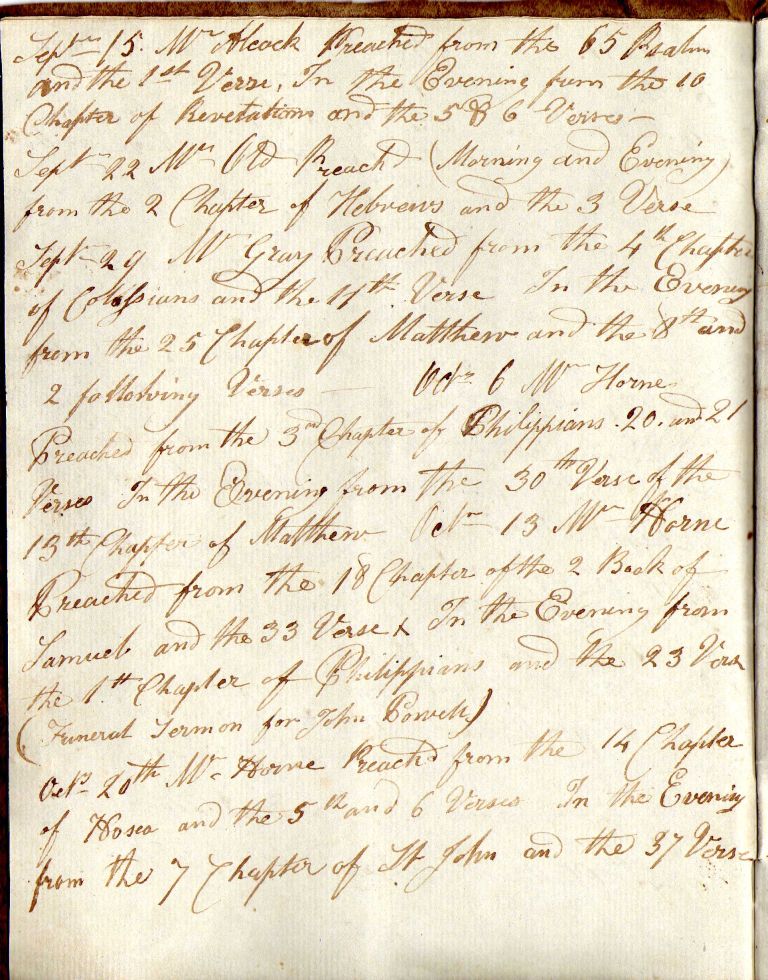 Septr 15. Mr Alcock Preached from the 65 Psalm
and the 1st Verse, In the Evening from the 10
Chapter of Revetations and the 5 & 6 Verses —
Septr 22 Mr Old Preach'd (Morning and Evening)
from the 2 Chapter of Hebrews and the 3 Verse
Septr 29 Mr Gray Preached from the 4th Chapter
of Colossians and the 17th Verse In the Evening
from the 25 Chapter of Matthew and the 8th and
2 following Verses — Octr 6 Mr Horne
Preached from the 3rd Chapter of Philippians. 20. and 21
Verses In the Evening from the 30th Verse of the
13th Chapter of Matthew Octr 13 Mr Horne
Preached from the 18 Chapter of the 2 Book of
Samuel and the 33 Verse x In the Evening from
the 1st Chapter of Philippians and the 23 Verse
(Funeral Sermon for John Powell)
Octr 20th Mr Horne Preach'd from the 14 Chapter
of Hosea and the 5th and 6 Verses In the Evening
from the 7 Chapter of St John and the 37 Verse